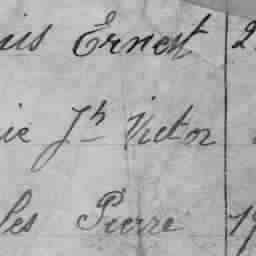 uis Ernest 2
ie Jh Victor
les Pierre 19